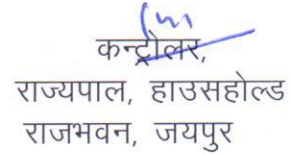 कन्ट्रोलर,
राज्यपाल, हाउसहोल्ड
राजभवन, जयपुर